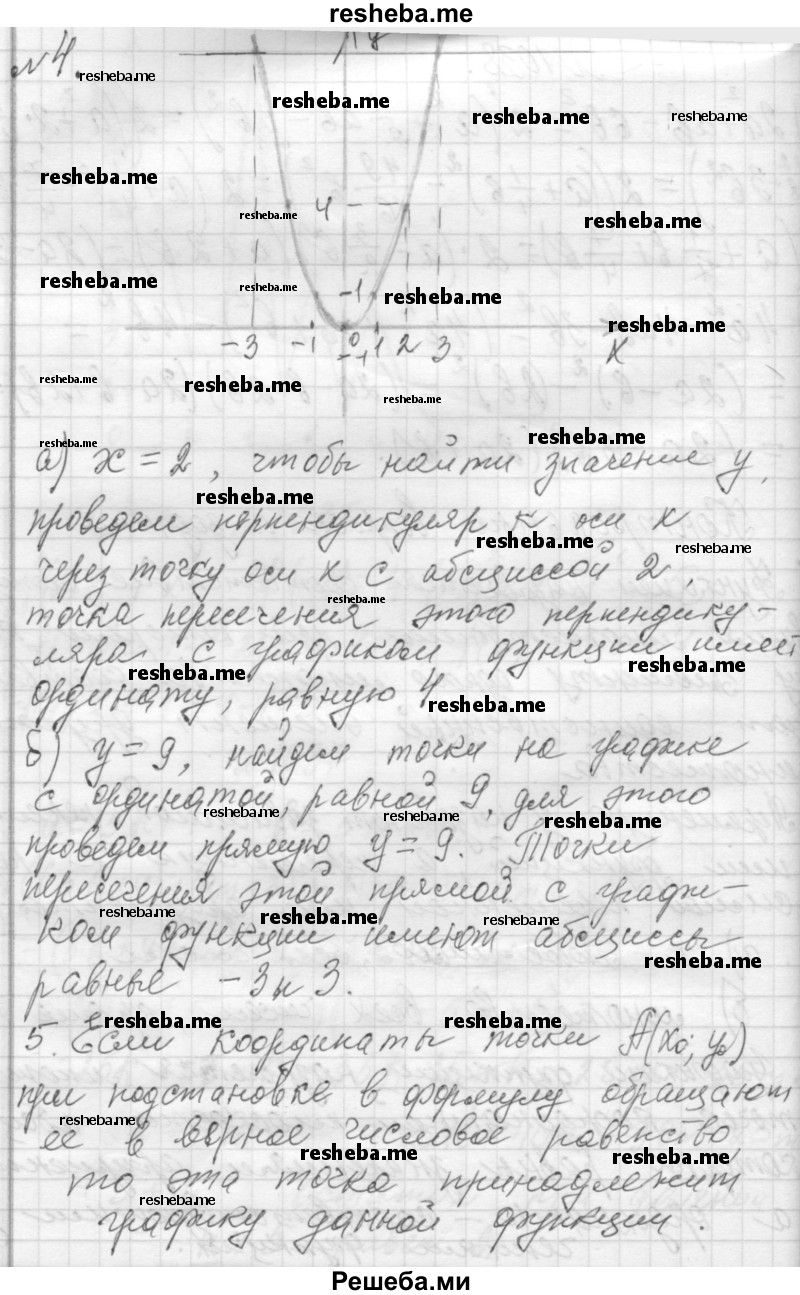 resheba.me
№4.
y
4
-1
-3 -1 0 1 2 3 x
-1
а) x = 2, чтобы найти значение y,
проведем перпендикуляр к оси x
через точку оси x с абсциссой 2,
точка пересечения этого перпендику-
ляра с графиком функции имеет
ординату, равную 4
б) y = 9, найдем точки на графике
с ординатой, равной 9, для этого
проведем прямую y = 9. Точки
пересечения этой прямой с графи-
ком функции имеют абсциссы
равные -3 и 3.
5. Если координаты точки A(x₀; y₀)
при подстановке в формулу обращают
ее в верное числовое равенство,
то эта точка принадлежит
графику данной функции.
Решеба.ми